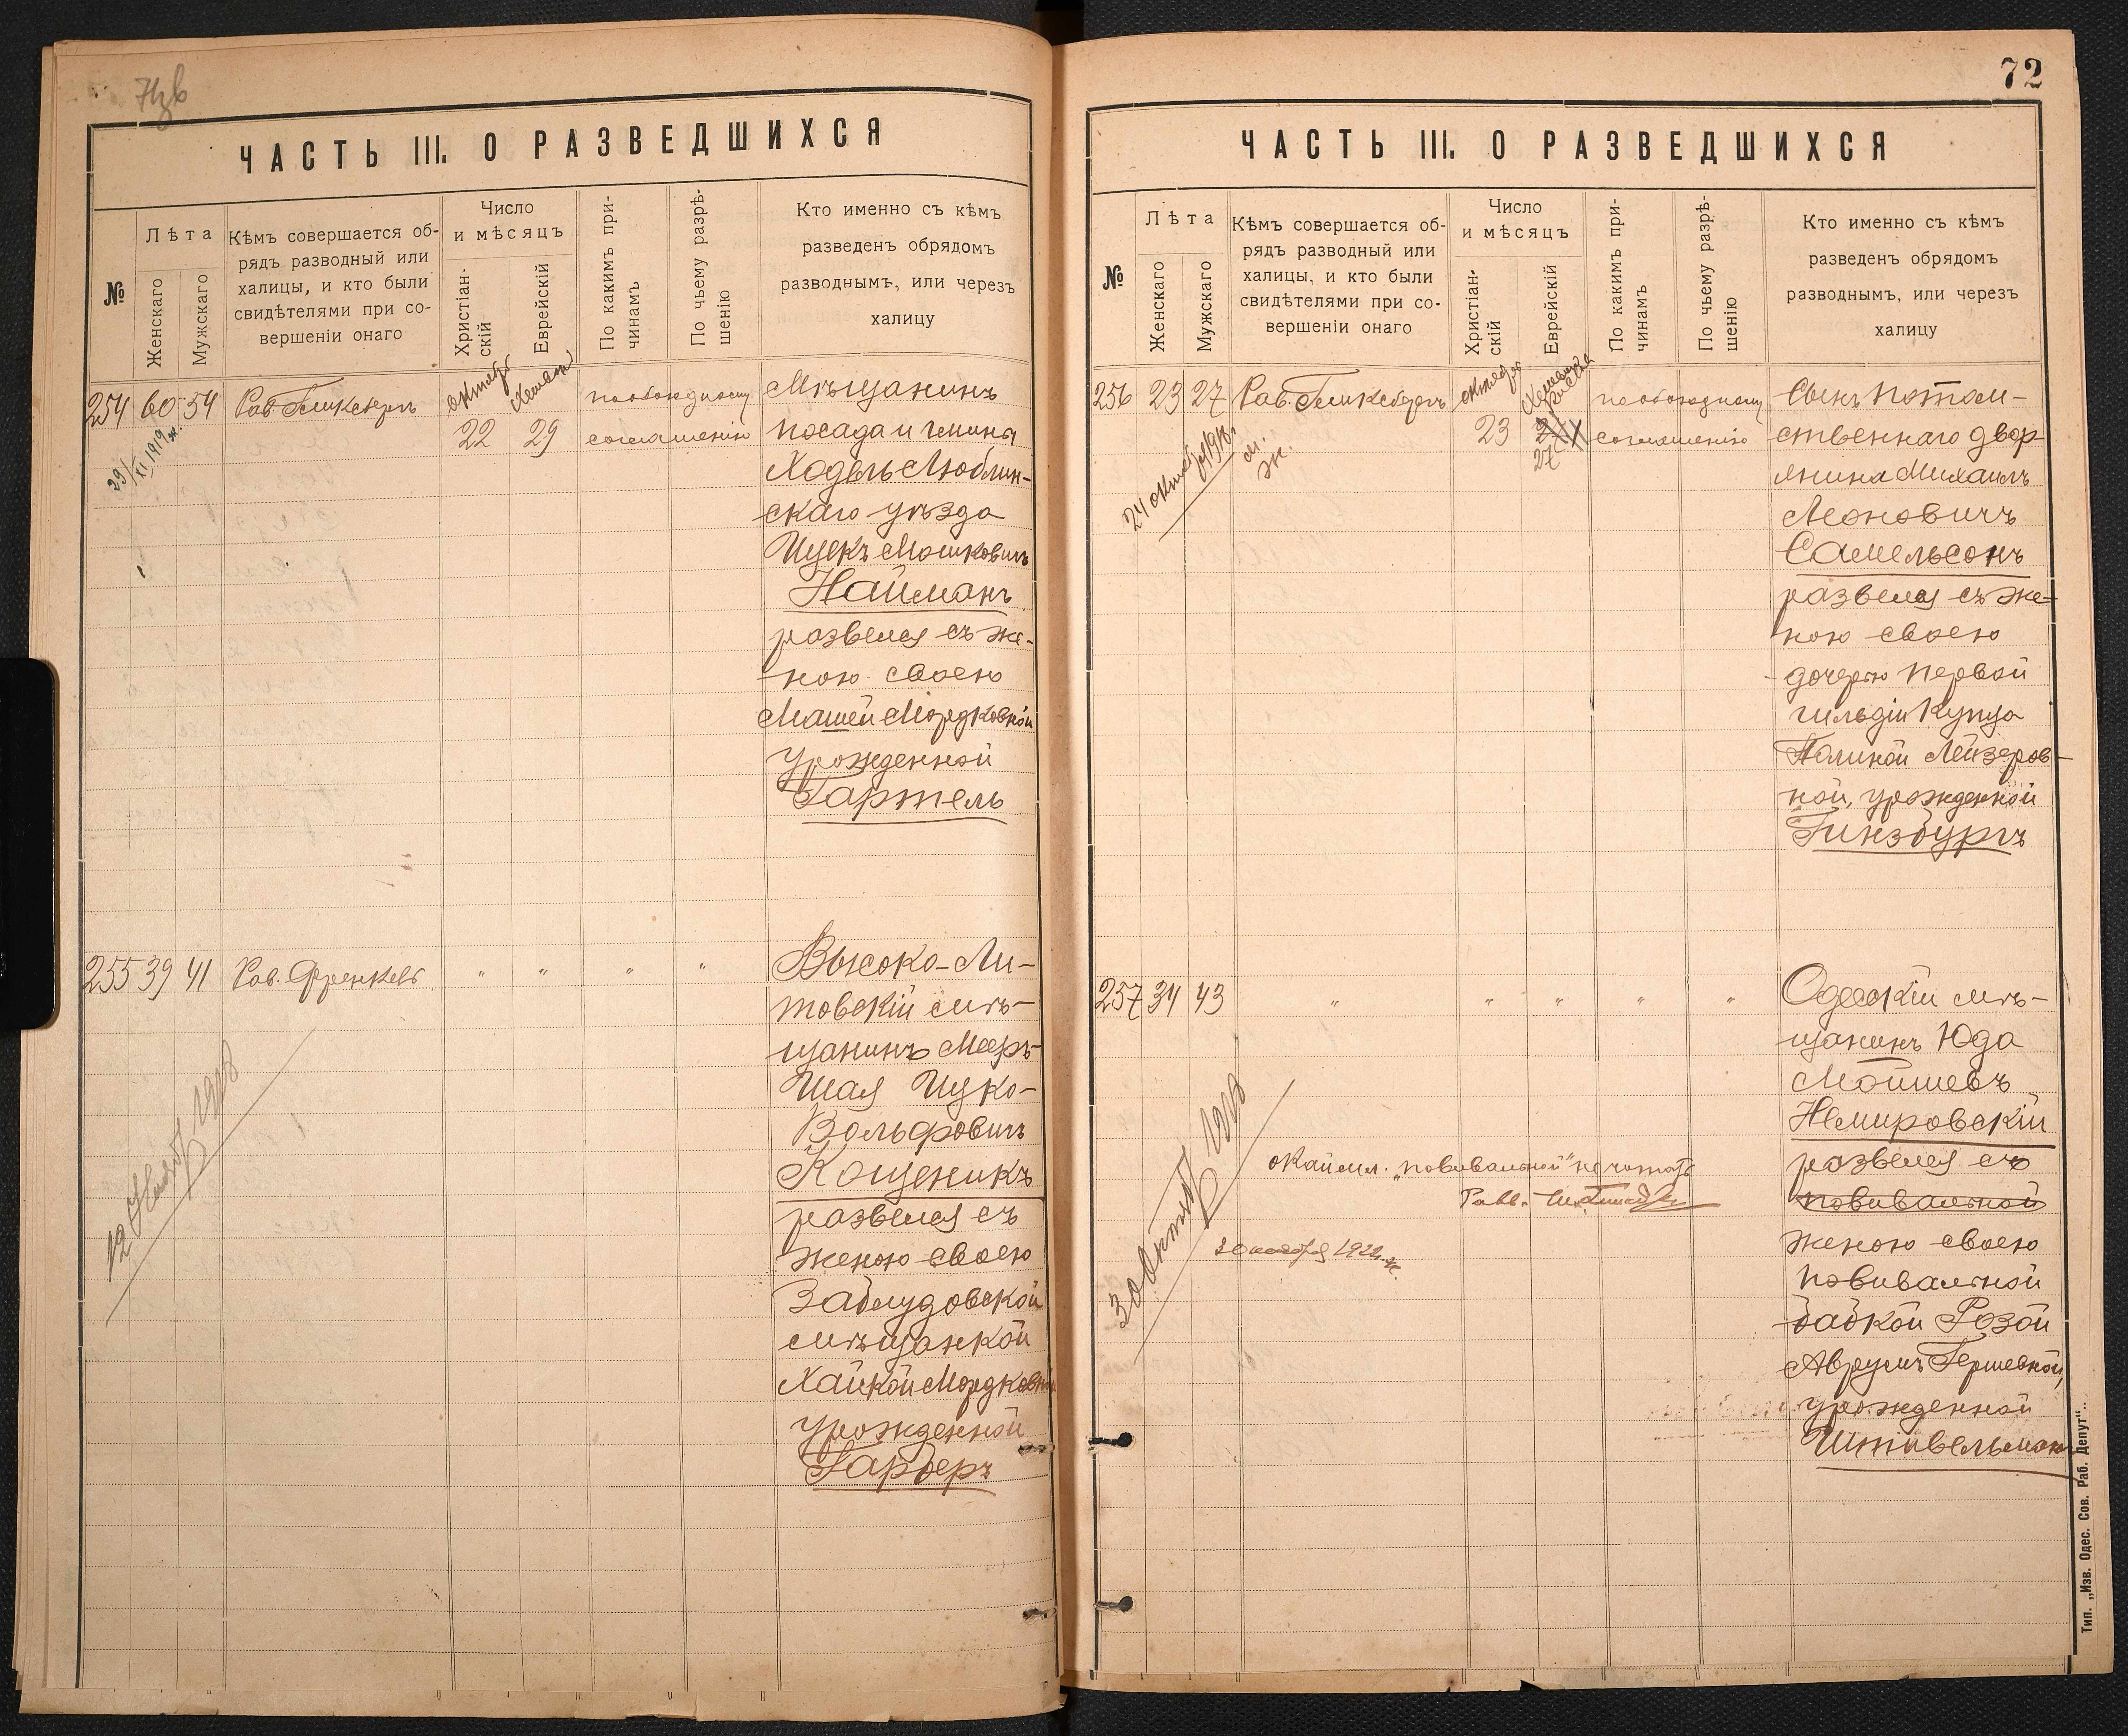 ЧАСТЬ III. О РАЗВЕДШИХСЯ
№
Лѣта
Женскаго
Мужскаго
Кѣмъ совершается об-
рядъ разводный или
халицы, и кто были
свидѣтелями при со-
вершеніи онаго
Число
и мѣсяцъ
Христіан-
скій
Еврейскій
По какимъ при-
чинамъ
По чьему разрѣ-
шенію
Кто именно съ кѣмъ
разведенъ обрядомъ
разводнымъ, или черезъ
халицу
254 60 54 Рав. Гликсбергъ
октября
22 29
по обоюдному
соглашенію
29/XI 1919 ж.
Мѣщанинъ
посада и гмины
Ходель Люблин-
скаго уѣзда
Ицекъ Мошковичъ
Найманъ
развелся съ же-
ною своею
Машей Мордковной
урожденной
Гартель
255 39 41 Рав. Френкель " " " "
12 Нояб 1918
Высоко-Ли-
товскій мѣ-
щанинъ Мееръ-
Шая Ицко-
Вольфовичъ
Кощеникъ
развелся съ
женою своею
Заблудовской
мѣщанкой
Хайкой Мордковной
урожденной
Гарберъ
72
ЧАСТЬ III. О РАЗВЕДШИХСЯ
№
Лѣта
Женскаго
Мужскаго
Кѣмъ совершается об-
рядъ разводный или
халицы, и кто были
свидѣтелями при со-
вершеніи онаго
Число
и мѣсяцъ
Христіан-
скій
Еврейскій
По какимъ при-
чинамъ
По чьему разрѣ-
шенію
Кто именно съ кѣмъ
разведенъ обрядомъ
разводнымъ, или черезъ
халицу
256 23 27 Рав. Гликсбергъ
октября
23
27
по обоюдному
соглашенію
24 октяб 1918.
м.
ж.
Сынъ потом-
ственнаго двор-
янина Михаилъ
Леоновичъ
Самельсонъ
развелся съ же-
ною своею
дочерью первой
гильдіи купца
Полиной Лейзеров-
ной, урожденной
Гинзбургъ
257 34 43 " " " " "
30 октяб 1918
окаймл. "повивальной" не читать
Равв.
1922 ж.
Одесскій мѣ-
щанинъ Юда
Мойшевъ
Немировскій
развелся съ
повивальной
женою своею
повивальной
бабкой Розой
Аврумъ Гершевной,
урожденной
Штивельманъ
Тип. „Изв. Одес. Сов. Раб. Депут“.